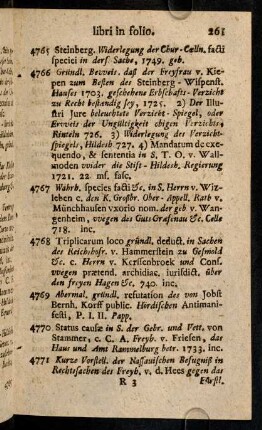 libri in folio. 261
4765 Steinberg, Widerlegung der Chur-Cœlln. facti
speciei in ders. Sache, 1749. geb.
4766 Gründl. Beweis, daß der Freyfrau v. Kie-
pen zum Besten des Steinberg-Wispenst.
Hauses 1703. geschehene Erbschafts-Verzicht
zu Recht beständig sey, 1725. 2) Der Illu-
stri Jure beleuchtete Verzicht-Spiegel, oder
Erweis der Ungültigkeit obigen Verzichts,
Rinteln 726. 3) Widerlegung des Verzicht-
spiegels, Hildesh. 727. 4) Mandatum de ex-
equendo, & sententia in S. T. O. v. Wall-
moden wider die Stift-Hildesh. Regierung
1721. 22 ms. fasc.
4767 Wahrh. species facti &c. in S. Herrn v. Witz-
leben c. den K. Großbr. Ober-Appell. Rath v.
Münchhausen uxorio nom. der geb. v. Wan-
genheim, wegen des Guts Grasenau &c. Celle
718. inc.
4768 Triplicarum loco gründl. deduct. in Sachen
des Reichshofr. v. Hammerstein zu Gesmold
&c. c. Herrn v. Kerssenbroek und Cons.
wegen prætend. archidiac. jurisdict. über
den freyen Hagen &c. 740. inc.
4769 Abermal. gründl. refutation des von Jobst
Bernh. Korff public. Hördischen Antimani-
festi, P. I. II. Papp.
4770 Status causæ in S. der Gebr. und Vett. von
Stammer, c. C. A. Freyh. v. Friesen, das
Haus und Amt Rammelburg betr. 1733. inc.
4771 Kurze Vorstell. der Nassauischen Befugniß in
Rechtssachen des Freyh. v. d. Hees gegen das
R 3 Fürstl.